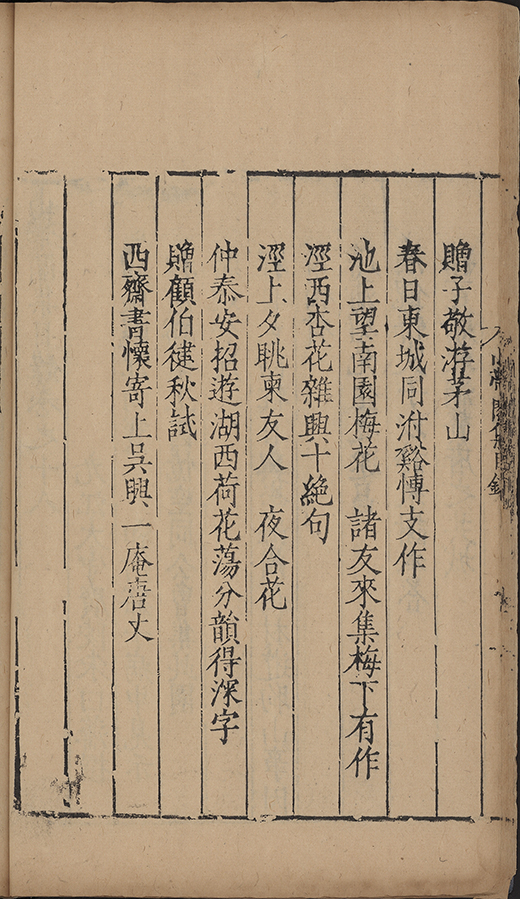 贈子敬游茅山
春日東城同泭谿慱支作
池上望南園梅花　諸友來集梅下有作
涇西杏花雜興十絶句
涇上夕眺柬友人　夜合花
仲泰安招遊湖西荷花蕩分韻得深字
贈顧伯徤秋試
西齋書懷寄上吳興一庵唐丈